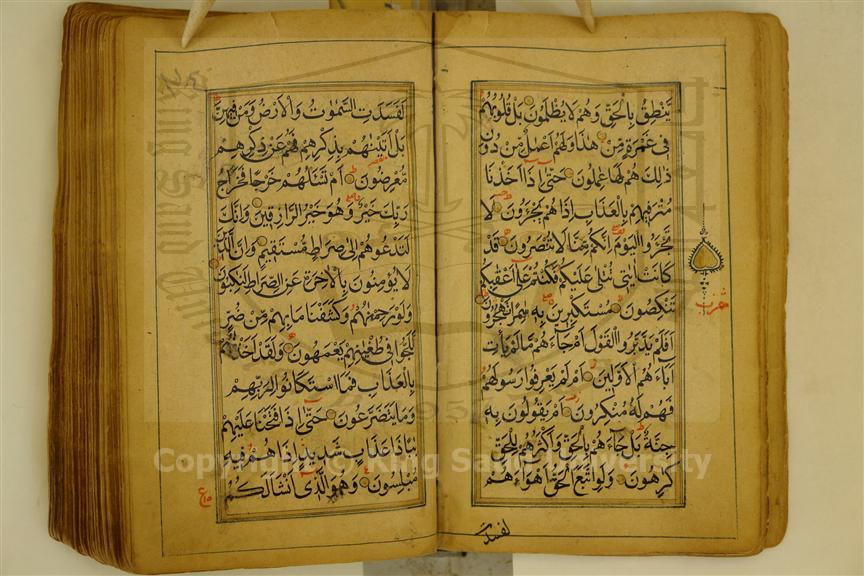 يَّنْطِقُ بِالْحَقِّ وَهُمْ لَا يُظْلَمُونَ بَلْ قُلُوبُهُمْ
فِى غَمْرَةٍ مِّنْ هٰذَا وَلَهُمْ اَعْمَالٌ مِّنْ دُوْنِ
ذٰلِكَ هُمْ لَهَا عٰمِلُونَ حَتّٰى اِذَا اَخَذْنَا
مُتْرَفِيْهِمْ بِالْعَذَابِ اِذَا هُمْ يَجْـَٔرُونَ لَا
تَجْـَٔرُوا الْيَوْمَ اِنَّكُمْ مِّنَّا لَا تُنْصَرُونَ قَدْ
كَانَتْ اٰيٰتِى تُتْلٰى عَلَيْكُمْ فَكُنْتُمْ عَلٰى اَعْقَابِكُمْ
تَنْكِصُونَ مُسْتَكْبِرِيْنَ بِهٖ سٰمِرًا تَهْجُرُونَ
اَفَلَمْ يَدَّبَّرُوا الْقَوْلَ اَمْ جَاءَهُمْ مَّا لَمْ يَاْتِ
اٰبَاءَهُمُ الْاَوَّلِيْنَ اَمْ لَمْ يَعْرِفُوا رَسُولَهُمْ
فَهُمْ لَهٗ مُنْكِرُونَ اَمْ يَقُولُونَ بِهٖ
جِنَّةٌ بَلْ جَاءَهُمْ بِالْحَقِّ وَاَكْثَرُهُمْ لِلْحَقِّ
كٰرِهُونَ وَلَوِ اتَّبَعَ الْحَقُّ اَهْوَاءَهُمْ
لفسدت
لَفَسَدَتِ السَّمٰوٰتُ وَالْاَرْضُ وَمَنْ فِيْهِنَّ
بَلْ اَتَيْنٰهُمْ بِذِكْرِهِمْ فَهُمْ عَنْ ذِكْرِهِمْ
مُّعْرِضُونَ اَمْ تَسْـَٔلُهُمْ خَرْجًا فَخَرَاجُ
رَبِّكَ خَيْرٌ وَهُوَ خَيْرُ الرَّازِقِيْنَ وَاِنَّكَ
لَتَدْعُوهُمْ اِلٰى صِرَاطٍ مُّسْتَقِيْمٍ وَاِنَّ الَّذِيْنَ
لَا يُؤْمِنُونَ بِالْاٰخِرَةِ عَنِ الصِّرَاطِ لَنٰكِبُونَ
وَلَوْ رَحِمْنٰهُمْ وَكَشَفْنَا مَا بِهِمْ مِّنْ ضُرٍّ
لَّلَجُّوا فِى طُغْيَانِهِمْ يَعْمَهُونَ وَلَقَدْ اَخَذْنٰهُمْ
بِالْعَذَابِ فَمَا اسْتَكَانُوا لِرَبِّهِمْ
وَمَا يَتَضَرَّعُونَ حَتّٰى اِذَا فَتَحْنَا عَلَيْهِمْ
بَابًا ذَا عَذَابٍ شَدِيْدٍ اِذَا هُمْ فِيْهِ
مُبْلِسُونَ وَهُوَ الَّذِى اَنْشَاَ لَكُمُ
Copyright © King Saud University